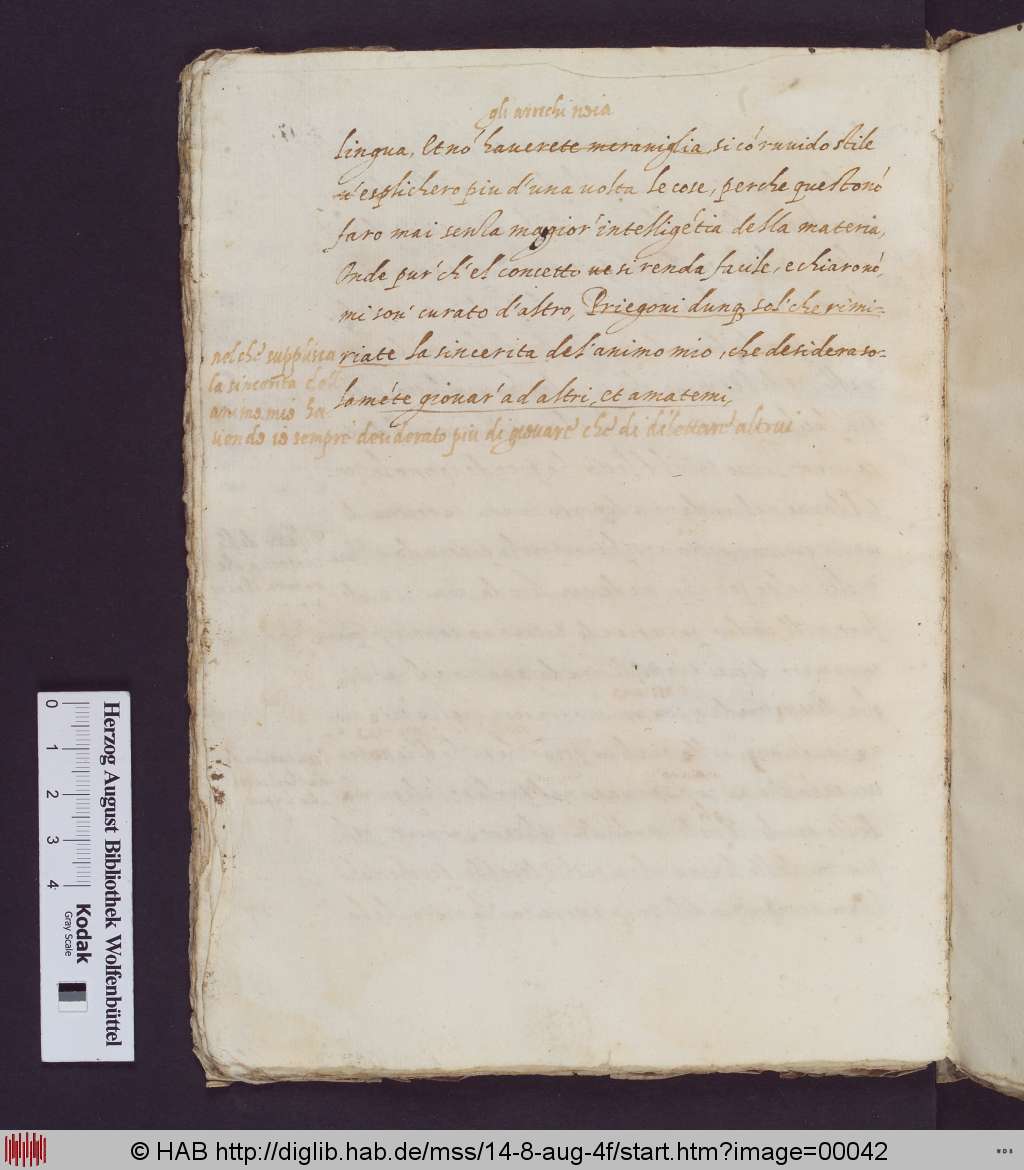 gli arrechi noia
lingua, Et nó haverete meraviglia, si có ruvido stile
v'esplichero piu d'una volta le cose, perche questo nó
faro mai senza magior' intelligétia della materia,
Onde pur' ch' el concetto ve si renda facile, e chiaro nó,
mi son' curato d'altro, Priegovi dunq sol' che rimi-
riate la sincerita del' animo mio, che desidera so-
laméte giovar' ad altri, et amatemi,
nel che supplisca
la sincerita del
animo mio ha
vendo io sempre desiderato piu di giovare che di dilettare altrui
0 1 2 3 4
Herzog August Bibliothek Wolfenbüttel
Kodak
Gray Scale
© HAB http://diglib.hab.de/mss/14-8-aug-4f/start.htm?image=00042